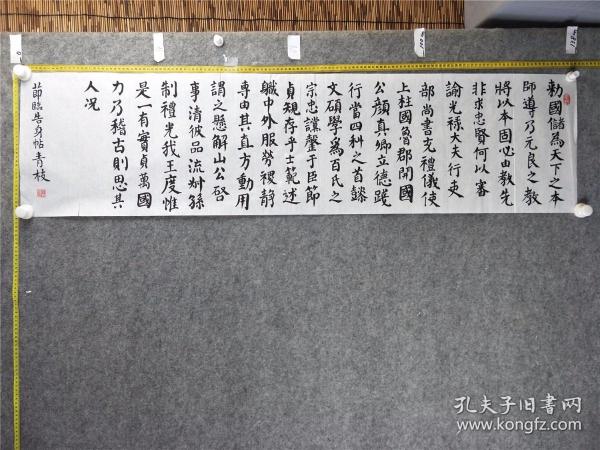 勅國儲為天下之本
師導乃元良之教
將以本固必由教先
非求忠賢何以審
諭光祿大夫行吏
部尚書充禮儀使
上柱國魯郡開國
公顏真卿立德踐
行當四科之首懿
文碩學為百氏之
宗忠讜罄于臣節
貞規存乎士範述
軄中外服勞稷靜
專由其直方動用
謂之懸解山公啓
事清彼品流叔孫
制禮光我王度惟
是一有實貞萬國
力乃稽古則思其
人况
節臨告身帖青枝
孔夫子旧书网
www.kongfz.com